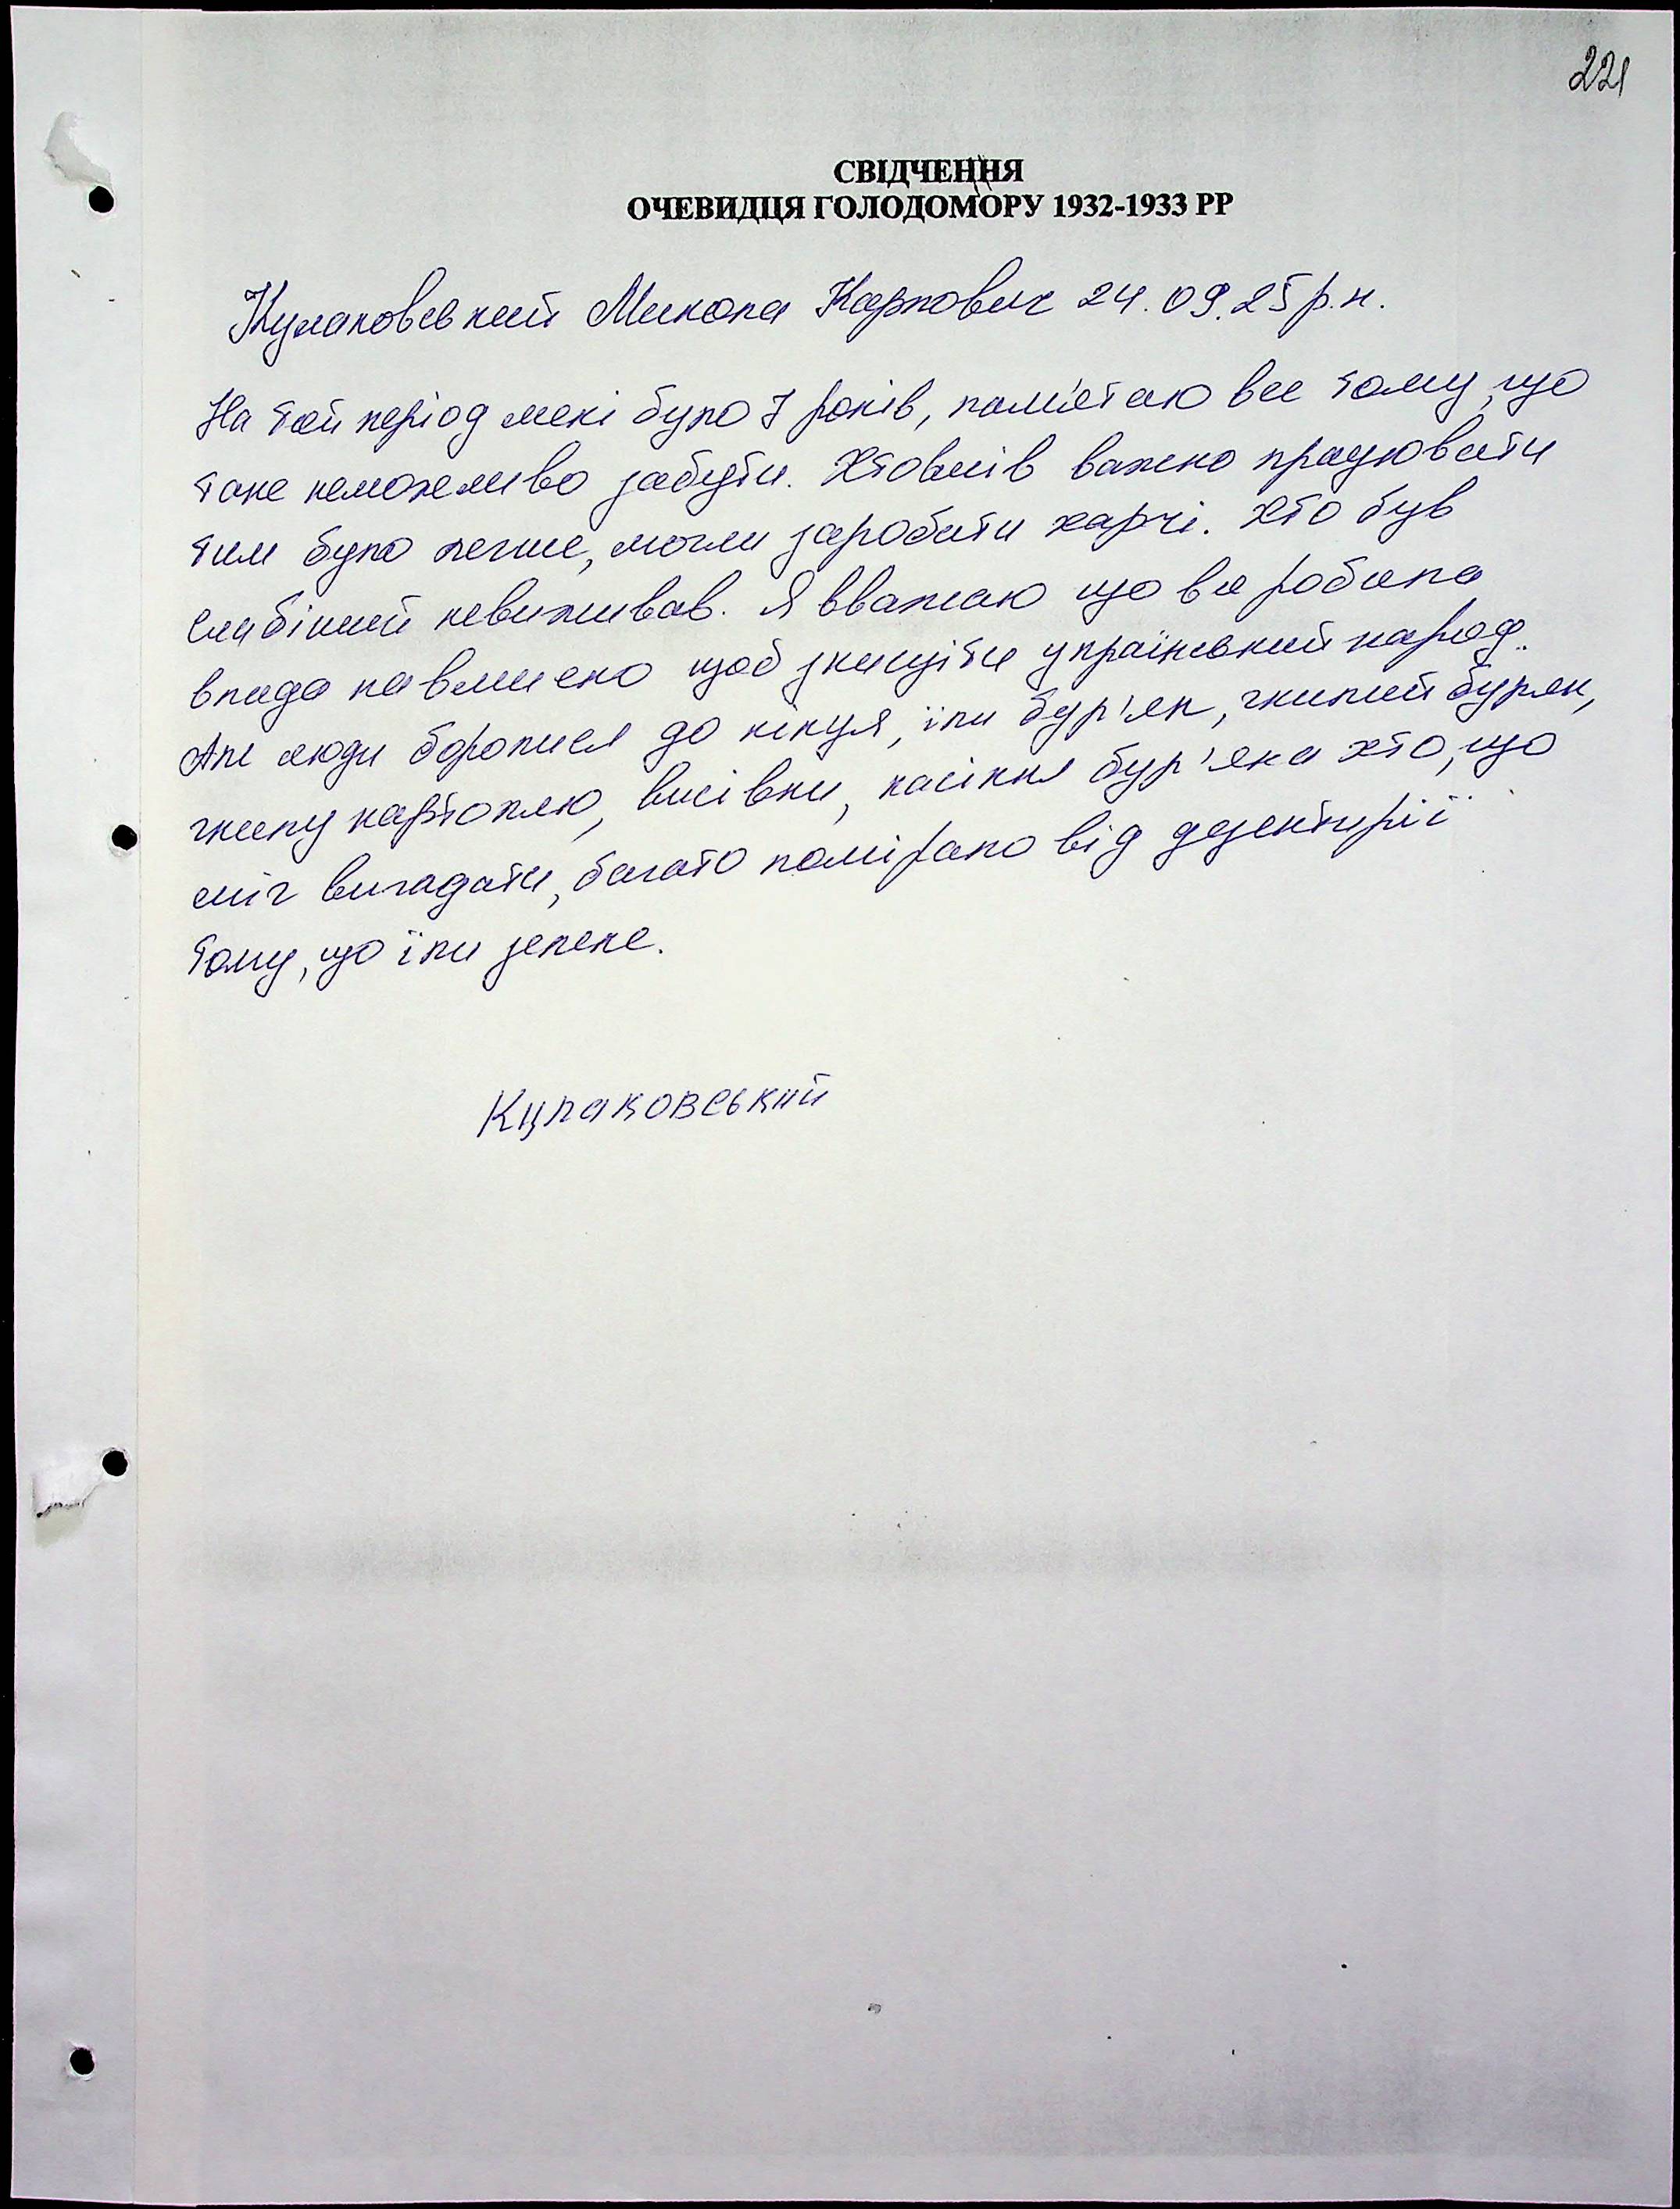 221
СВІДЧЕННЯ
ОЧЕВИДЦЯ ГОЛОДОМОРУ 1932-1933 РР
Кулаковський Микола Карпович 24.09.25 р.н.
На той період мені було 7 років, пам'ятаю все тому, що
таке неможливо забути. Хто вмів важко працювати
тим було легше, могли заробити харчі. Хто був
слабіший невиживав. Я вважаю що все робила
влада навмисно щоб знищіти український народ.
Але люди боролися до кінця, їли бур'ян, гнилий буряк,
гнилу картоплю, висівки, насіння бур'яна хто, що
міг вигадати, багато помірало від дезентирії
тому, що їли зелене.
Кулаковський